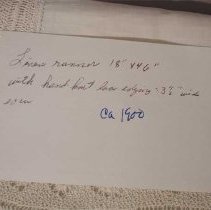 Linen runner 18" x 46"
with hand knit lace edging 3½" wide
Ca 1900